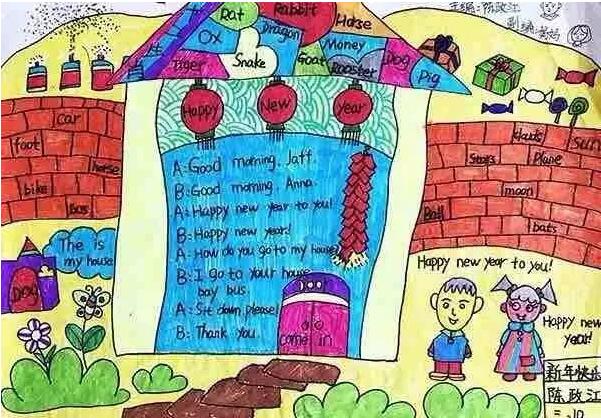 主编:陈政江
Rat
Rabbit
Horse
Ox
Dragon
Money
Tiger
Snake
Goat
Rooster
Dog
Pig
Happy
New
year
car
foot
horse
bike
Bus
clouds
Sun
Stars
Plane
moon
Ball
bats
A: Good morning, Jaff.
B: Good morning, Anna.
A: Happy new year to you!
B: Happy new year!
A: How do you go to my house
B: I go to your house
bay bus.
A: Sit down please!
B: Thank you.
The is
my house
DOG
Door
come in
Happy new year to you!
Happy new
year!
新年快乐
陈政江